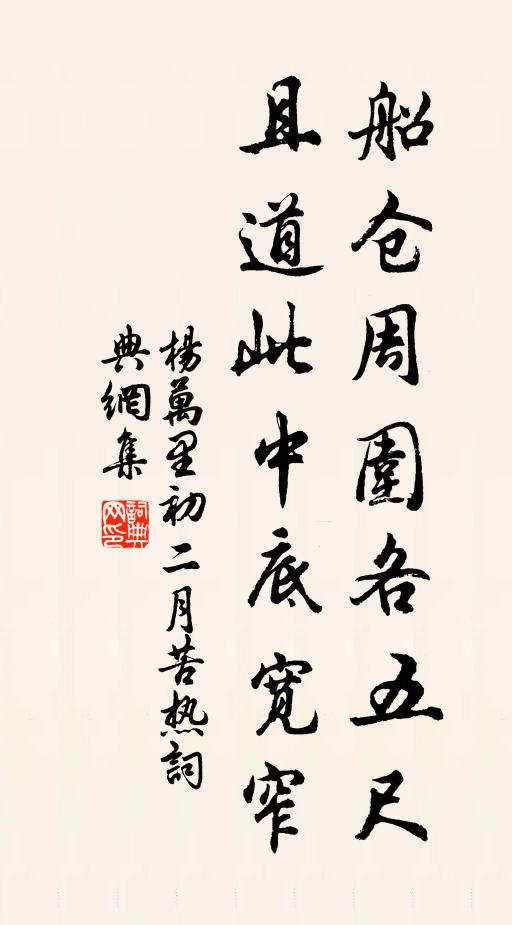 船仓周围各五尺
且道此中底寬窄
楊萬里初二月苦热詞
典網集
詞典网印